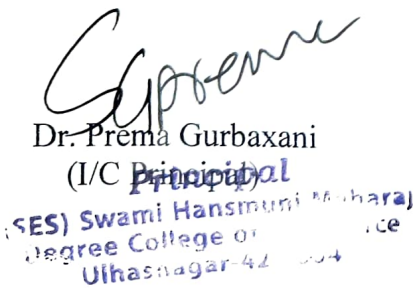 Dr. Prema Gurbaxani
(I/C Principal)
Principal
(SES) Swami Hansmuni Maharaj
Degree College of
Ulhasnagar-42